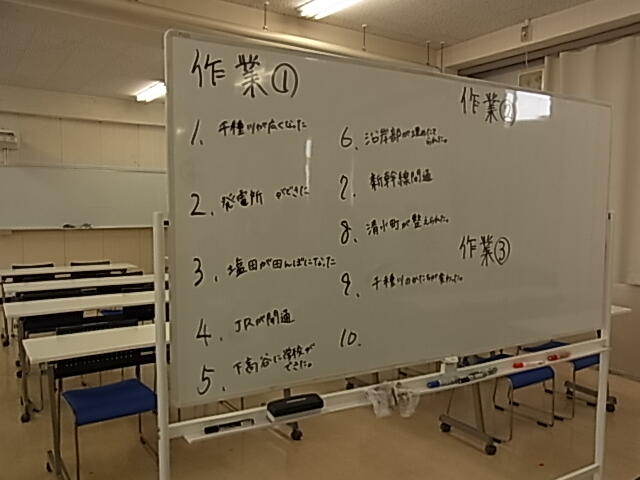 作業①
1. 千種川が広くなった
2. 発電所 ができた
3. 塩田が田んぼになった
4. JRが開通
5. 下高谷に学校が
できた。
6. 沿岸部が埋めたて
られた。
7. 新幹線開通
8. 清水町が整えられた。
9. 千種川のかたちが変わった。
10.
作業②
作業③